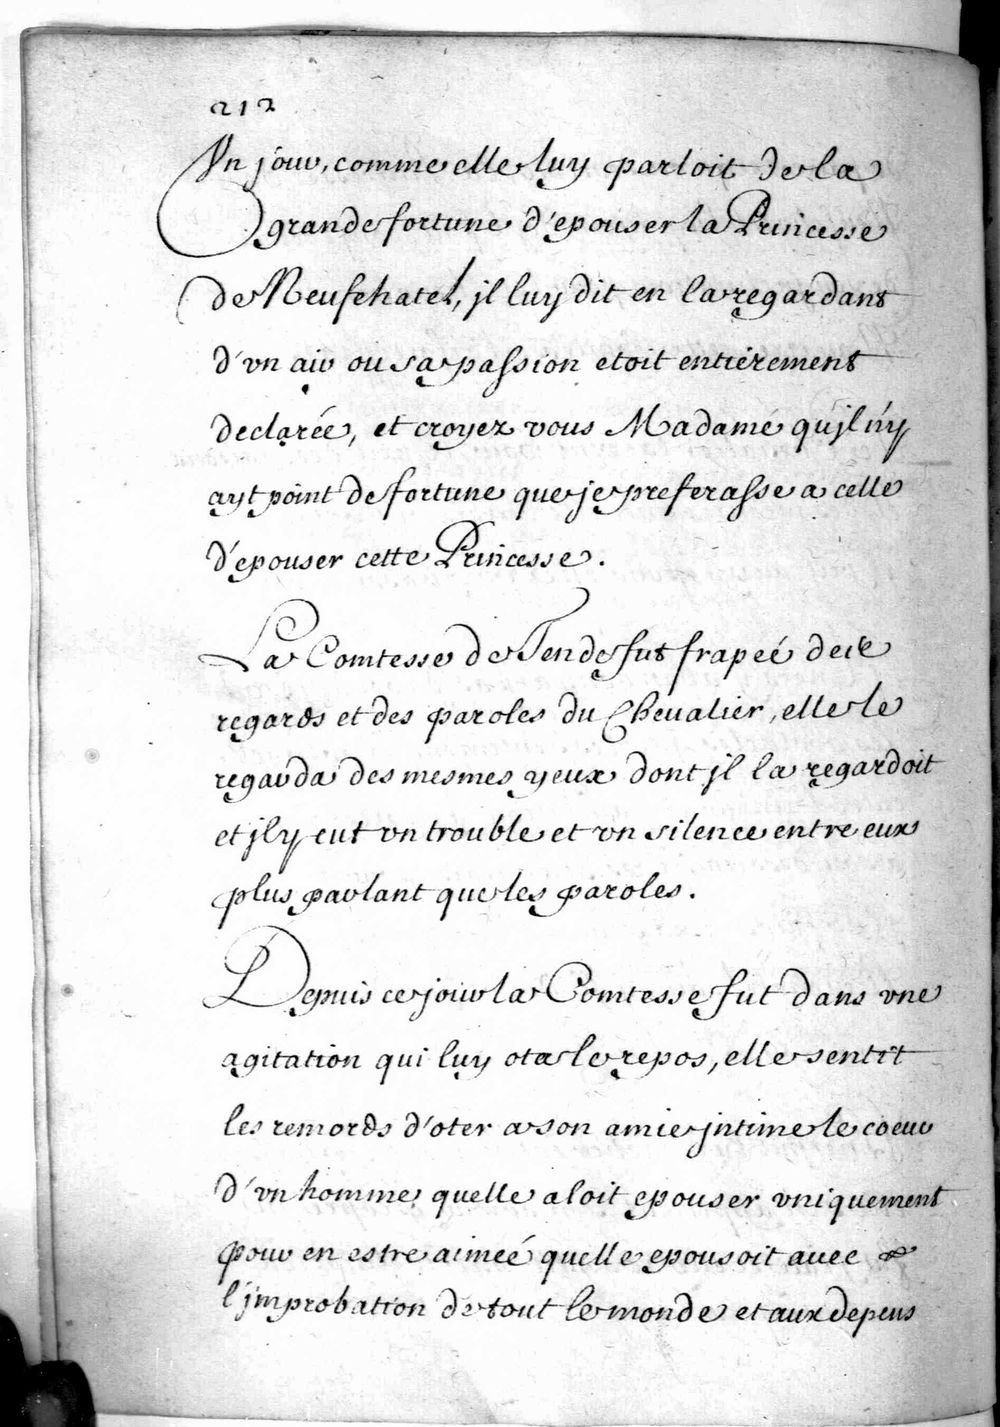 212
Vn jour, comme elle luy parloit de la
grande fortune d'epouser la Princesse
de Neufchatel, jl luy dit en la regardant
d'vn air ou sa passion etoit entiérement
declarée, et croyez vous Madame qu'jl n'y
ayt point de fortune que je preferasse a celle
d'epouser cette Princesse.
La Comtesse de Tende fut frapeé de
regards et des paroles du Chevalier, elle le
regarda des mesmes yeux dont jl la regardoit
et jl y eut vn trouble et vn silence entre eux
plus parlant que les paroles.
Depuis ce jour la Comtesse fut dans vne
agitation qui luy ota le repos, elle sentit
les remords d'oter a son amie jntime le coeur
d'vn homme, quelle aloit epouser vniquement
pour en estre aimeé quelle epousoit auec
l'jmprobation de tout le monde et aux depens